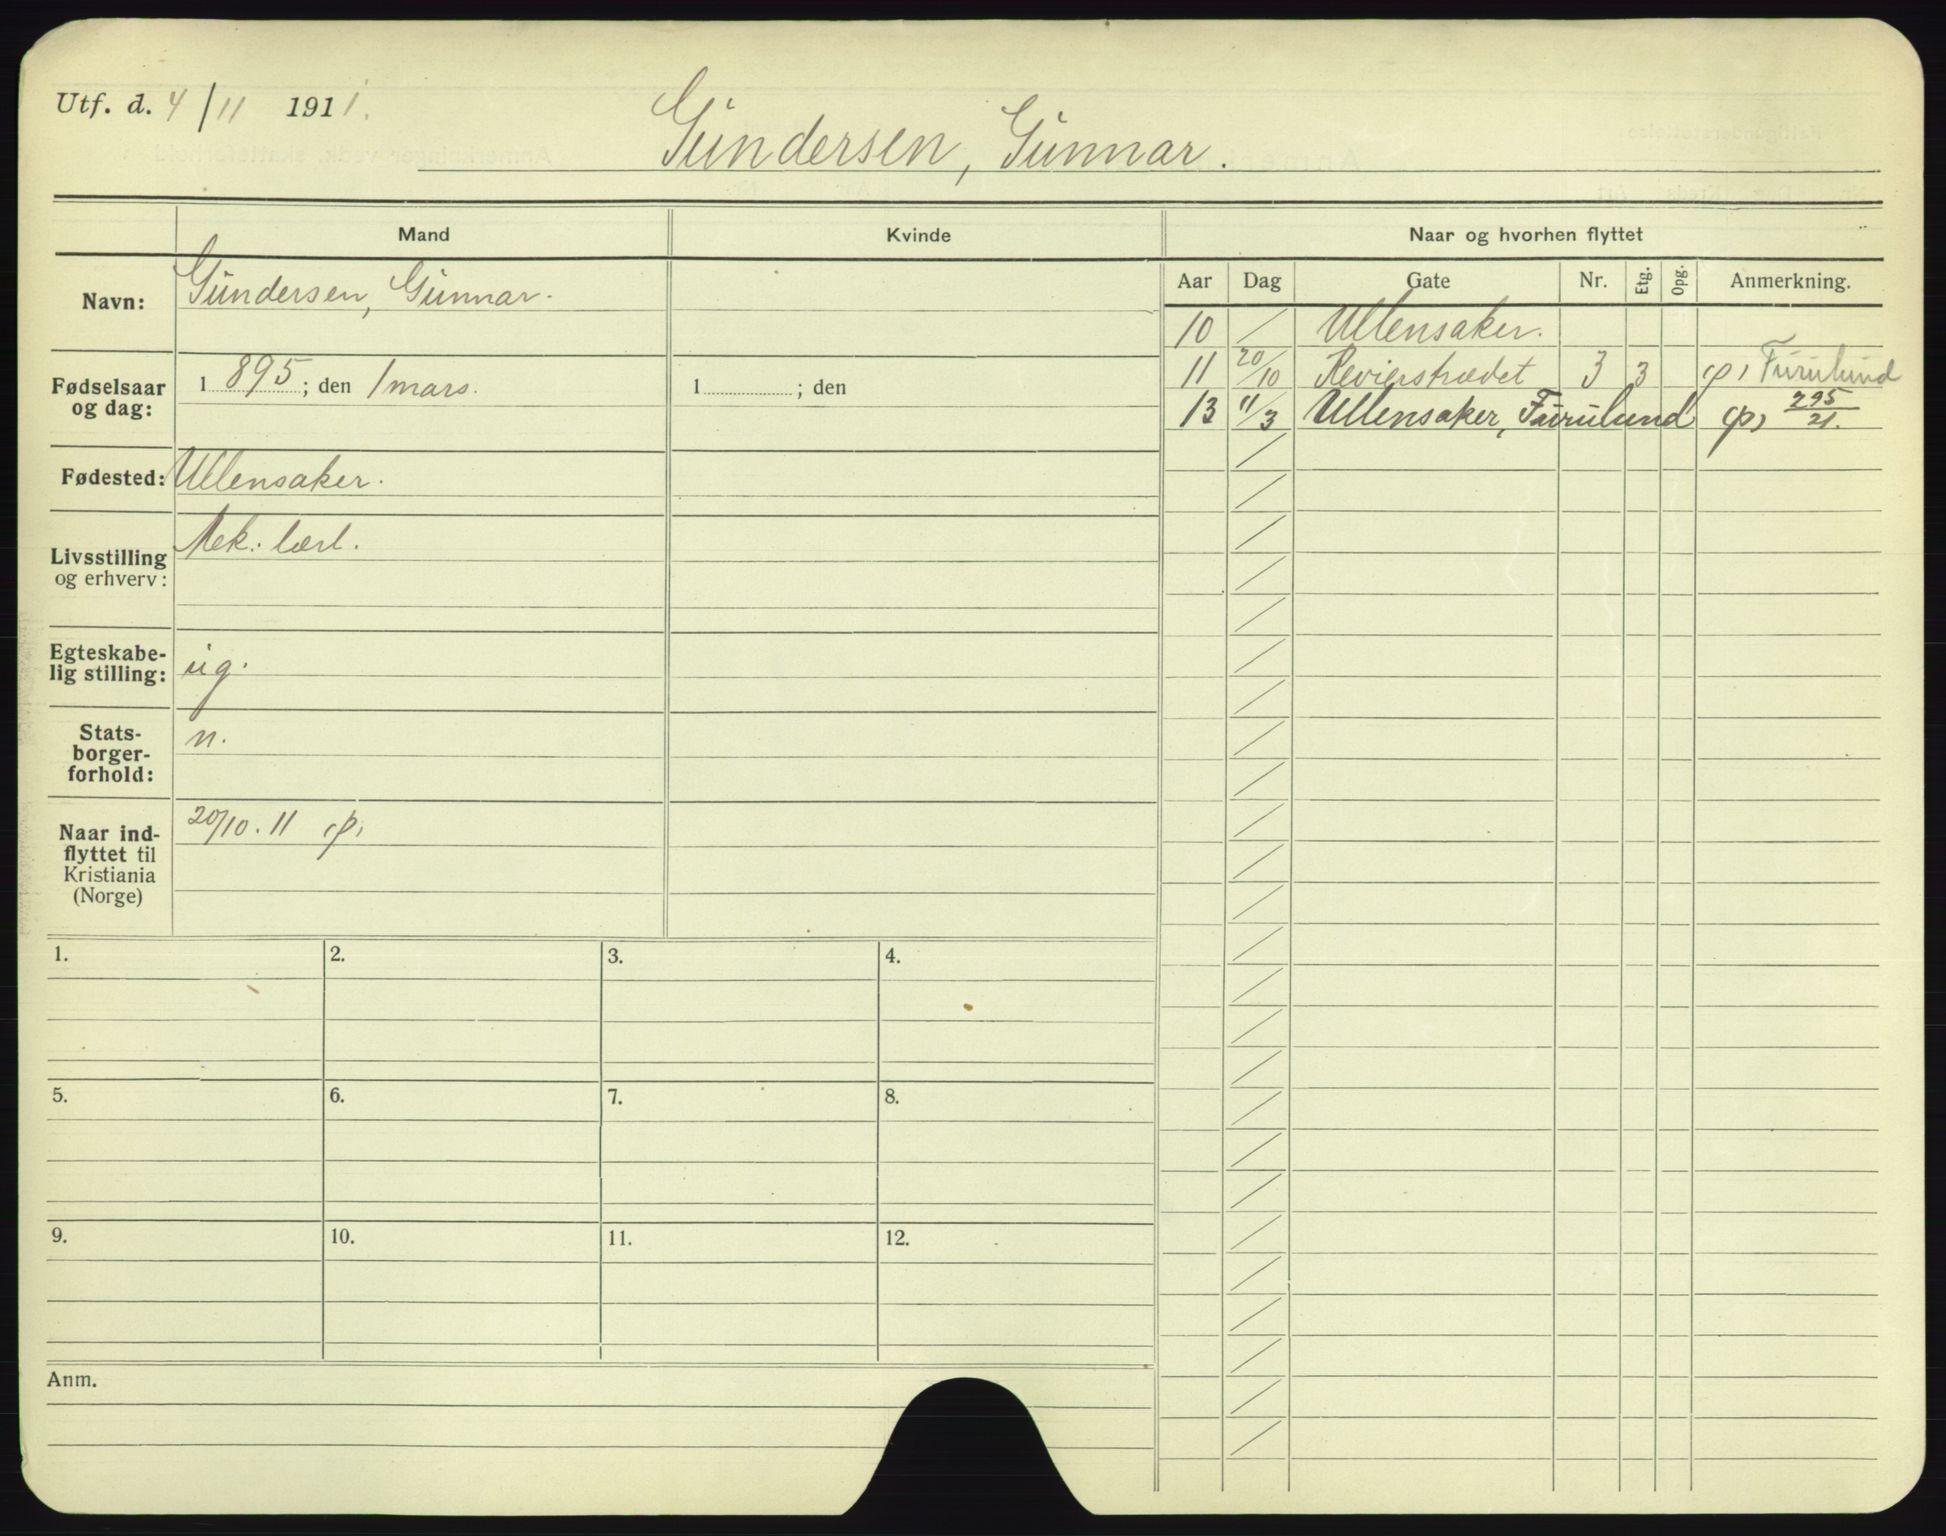 Utf. d. 4/11 1911.
Gundersen, Gunnar.
Mand
Kvinde
Naar og hvorhen flyttet
Navn: Gundersen, Gunnar.
Fødselsaar og dag: 1 895; den 1 mars.
1 ; den
Fødested: Ullensaker.
Livsstilling og erhverv: Mek. lærl.
Egteskabe-
lig stilling: ug.
Stats-
borger-
forhold: n.
Naar ind-
flyttet til
Kristiania
(Norge)
20/10. 11 p,
Aar Dag Gate Nr. Etg. Opg. Anmerkning.
10 / Ullensaker.
11 20/10 Revierstrædet 3 3 p, Furulund
13 11/3 Ullensaker, Furulund p, 295/21.
1. 2. 3. 4.
5. 6. 7. 8.
9. 10. 11. 12.
Anm.